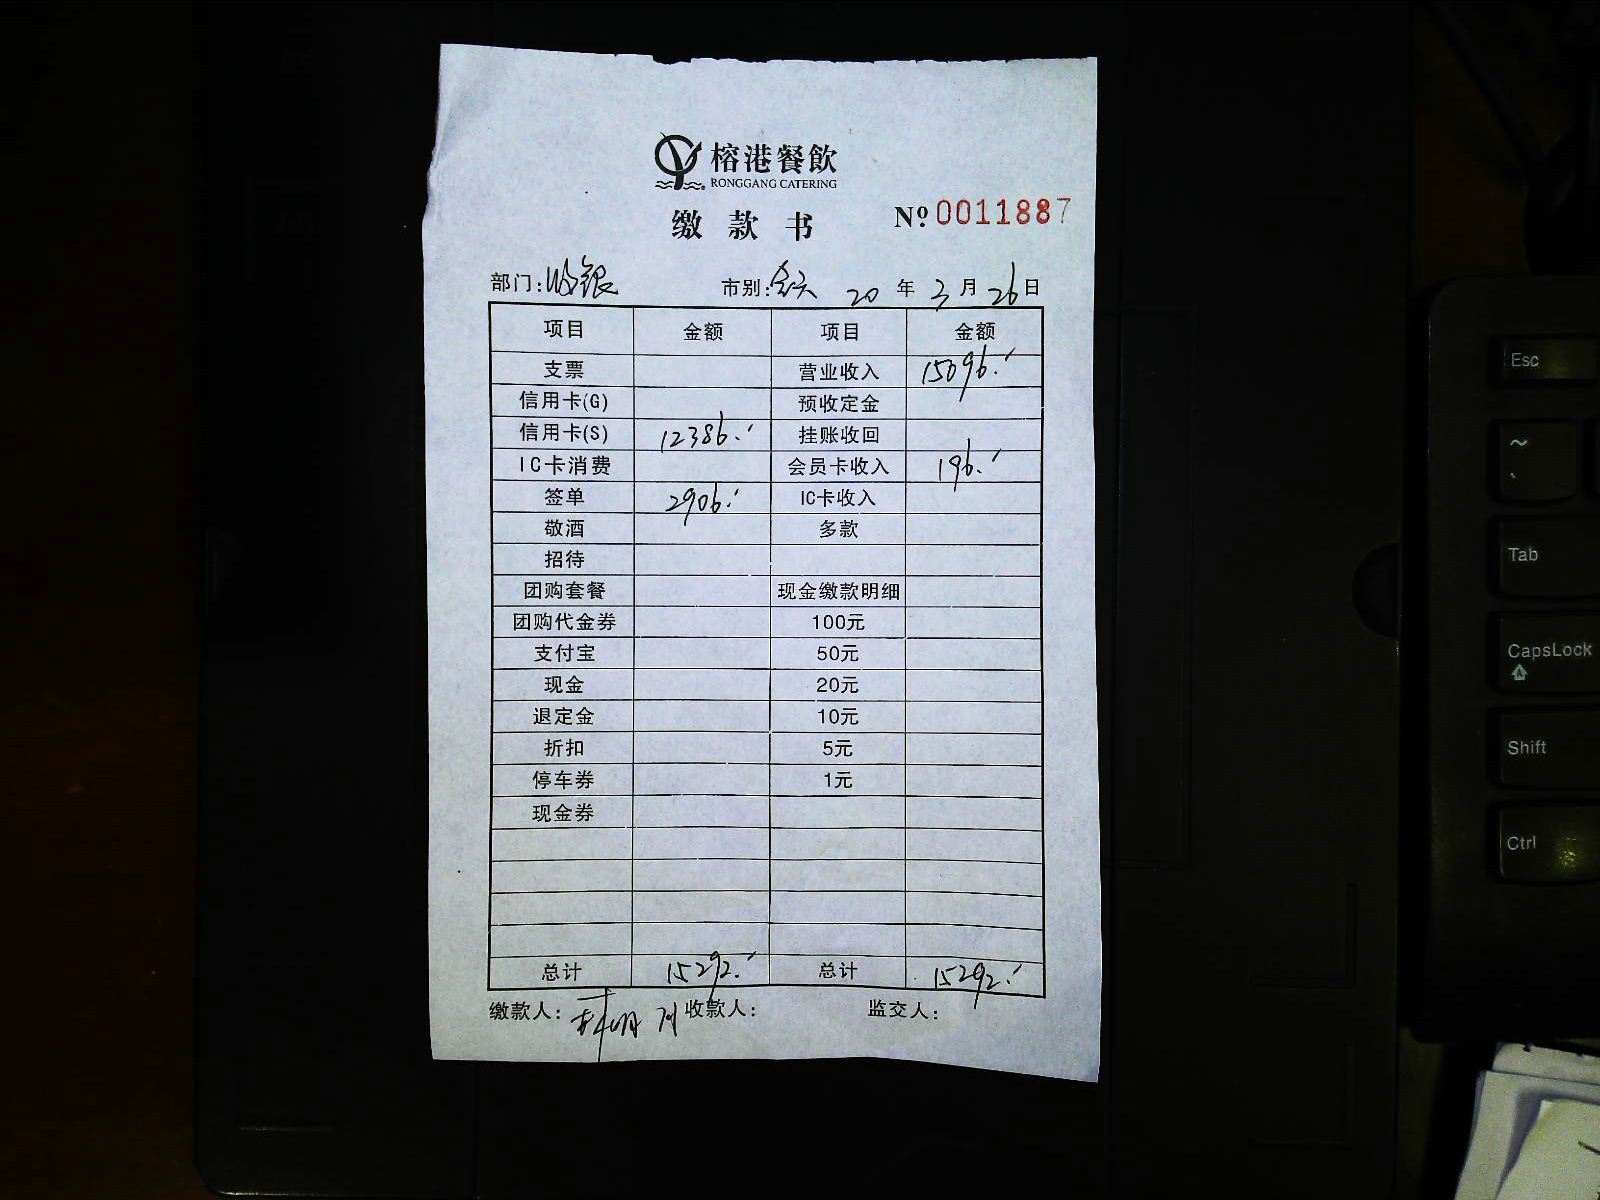 榕港餐飲
RONGGANG CATERING
缴款书 Nº 0011887
部门:收银 市别:全天 20 年 3 月 26 日
项目 金额 项目 金额
支票 营业收入 15096.
信用卡(G) 预收定金
信用卡(S) 12386. 挂账收回
IC卡消费 会员卡收入 196.
签单 2906. IC卡收入
敬酒 多款
招待
团购套餐 现金缴款明细
团购代金券 100元
支付宝 50元
现金 20元
退定金 10元
折扣 5元
停车券 1元
现金券
总计 15292. 总计 15292.
缴款人: 收款人: 监交人:
Esc
~
Tab
CapsLock
Shift
Ctrl